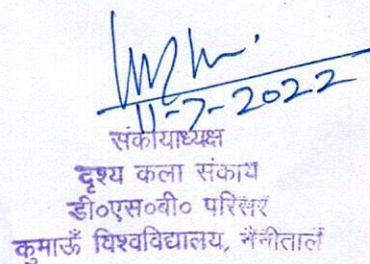 11-7-2022
संकायाध्यक्ष
दृश्य कला संकाय
डी०एस०बी० परिसर
कुमाऊँ विश्वविद्यालय, नैनीताल